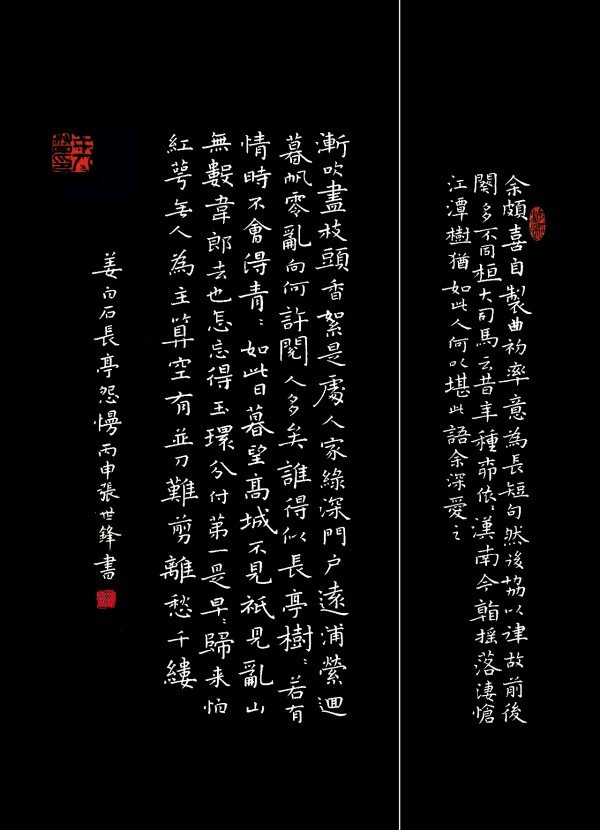 余頗喜自製曲初率意為長短句然後協以律故前後
闋多不同桓大司馬云昔年種柳依〻漢南今搖落淒愴
江潭樹猶如此人何以堪此語余深愛之
漸吹盡枝頭香絮是處人家綠深門户遠浦縈迴
暮帆零亂向何許閱人多矣誰得似長亭樹〻若有
情時不會得青〻如此日暮望高城不見衹見亂山
無數韋郎去也怎忘得玉環分付第一是早〻歸来怕
紅萼無人為主算空有並刀難剪離愁千縷
姜白石長亭怨慢丙申張世鋒書